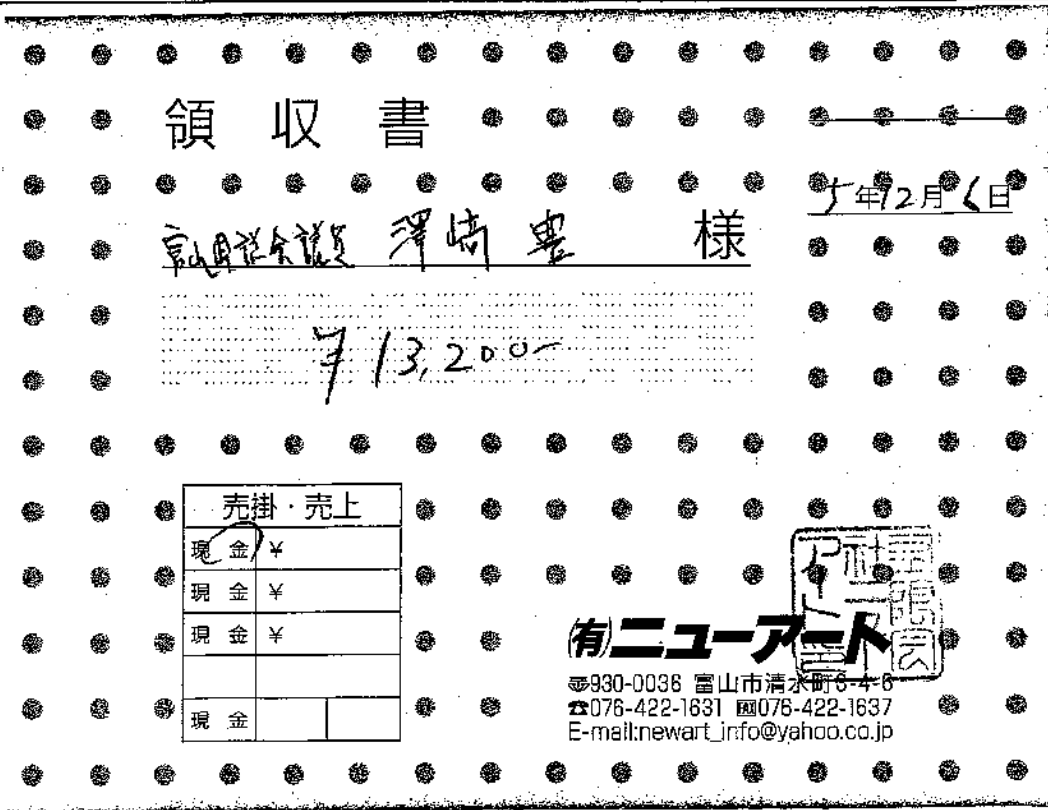 領収書
5年12月6日
富山県議会議員 澤崎 豊 様
¥13,200-
売掛・売上
現金 ¥
現金 ¥
現金 ¥
現金
㈲ニューアート
〒930-0036 富山市清水町8-4-6
☎076-422-1631 FAX076-422-1637
E-mail:newart_info@yahoo.co.jp